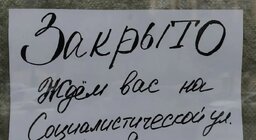 Закрыто
Ждём вас на
Социалистической ул.